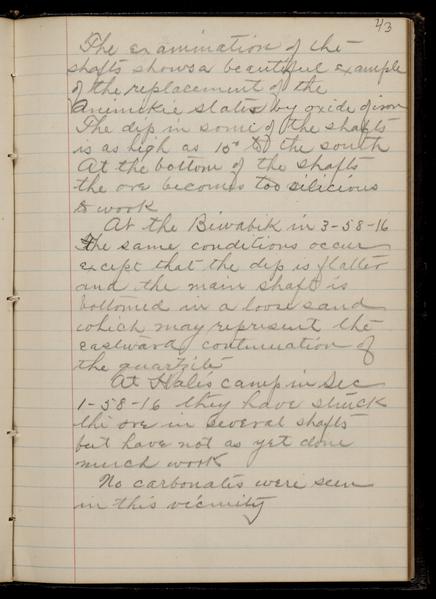 43
The examination of the
shafts shows a beautiful example
of the replacement of the
Animikie slates by oxide of iron
The dip in some of the shafts
is as high as 10° to the south
At the bottom of the shafts
the ore becomes too silicious
to work
At the Biwabik in 3-58-16
the same conditions occur
except that the dip is flatter
and the main shaft is
bottomed in a loose sand
which may represent the
eastward continuation of
the quartzite
At Hale's camp in Sec
1-58-16 they have struck
the ore in several shafts
but have not as yet done
much work
No carbonates were seen
in this vicinity